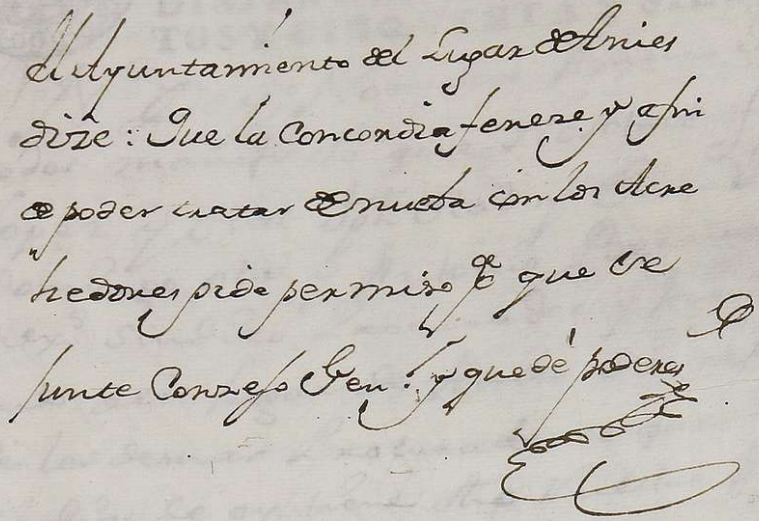 El Ayuntamiento del Lugar de Anies
dize: Que la Concordia feneze y afin
de poder tratar de nueba con los Acre
hedores pide permiso pa que se
junte Conzejo Gen.l y que dé poderes